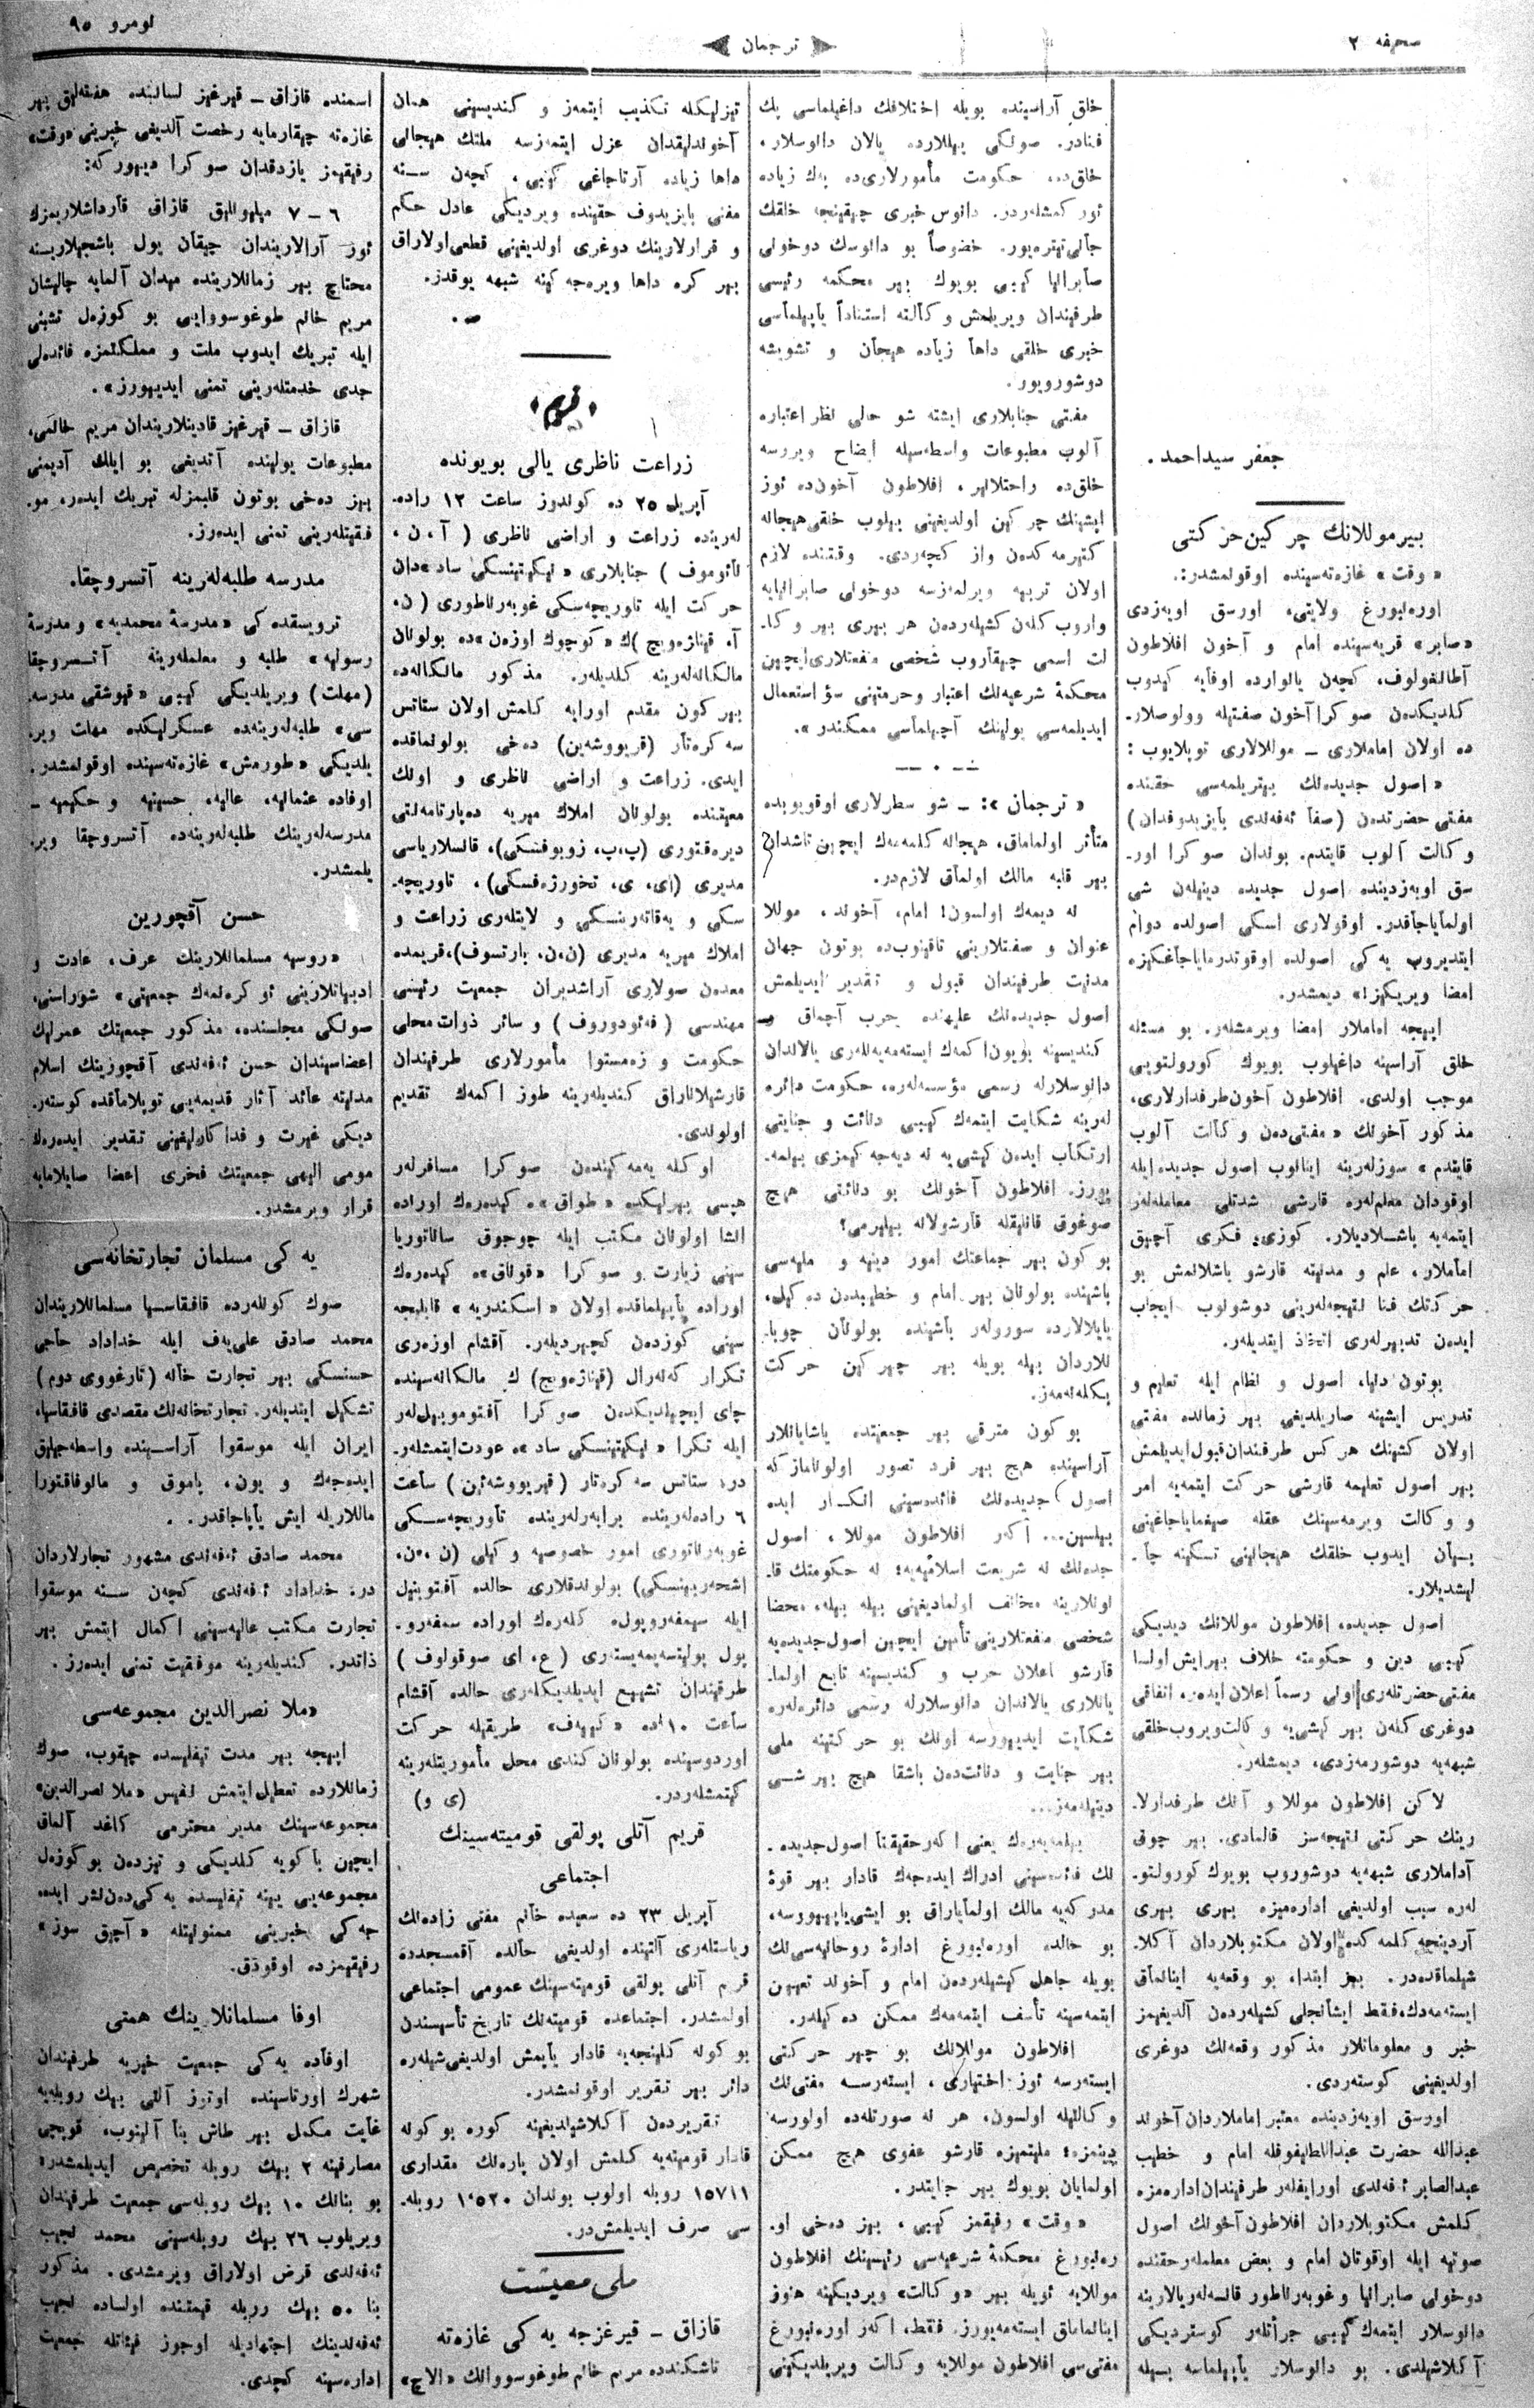 صحیفه ۲
ترجمان
نومرو ۹۵
جعفر سیداحمد .
بیر موللانك چرکین حرکتی
« وقت » غازەتەسینده اوقولمشدر:
اورەلبورغ ولایتی، اورسق اویەزدی
«صابر» قریەسینده امام و آخون افلاطون
کلدیکدن صوکرا آخون صفتیله وولوصلار-
ده اولان اماملاری ـ موللالاری توپلایوب :
« اصول جدیدەنك بیتریلمەسی حقنده
مفتی حضرتدن (صفا ئەفەندی بایزیدوفدان)
وکالت آلوب قایتدم. بوندان صوکرا اور-
سق اویەزدینده اصول جدیده دینیلەن شی
اولمایاجاقدر. اوقولاری اسکی اصولده دوام
امضا ویریکز!» دیمشدر.
اییجه اماملار امضا ویرمشلەر. بو مسئله
خلق آراسینه داغیلوب بویوك کورولتویی
موجب اولدی. افلاطون آخون طرفدارلاری،
مذکور آخونك « مفتیدەن وکالت آلوب
قایتدم » سوزلەرینه اینانوب اصول جدیده ایله
اوقودان معلملەره قارشی شدتلی معاملەلەر
ایتمەیه باشلادیلار. کوزی، فکری آچیق
اماملار، علم و مدنیته قارشو باشلانمش بو
حرکتك فنا نتیجەلەرینی دوشونوب ایجاب
ایدەن تدبیرلەری اتخاذ ایتدیلەر.
بوتون دنیا، اصول و نظام ایله تعلیم و
تدریس ایشینه صاریلدیغی بیر زمانده مفتی
اولان کشینك هرکس طرفندان قبول ایدیلمش
بیر اصول تعلیمه قارشی حرکت ایتمەیه امر
و وکالت ویرمەسینك عقله صیغمایاجاغینی
بیان ایدوب خلقك هیجانینی تسکینه چا-
لیشدیلار.
اصول جدیده، افلاطون موللانك دیدیکی
کیبی دین و حکومته خلاف بیر ایش اولسا
مفتی حضرتلەری اولی رسماً اعلان ایدەر،
دوغری کلەن بیر کیشییه وکالت ویروب خلقی
شبهەیه دوشورمەزدی، دیمشلەر.
لاکن افلاطون موللا و آنك طرفدارلا-
رینك حرکتی نتیجەسز قالمادی. بیر چوق
آداملاری شبهەیه دوشوروب بویوك کورولتو-
لەره سبب اولدیغی ادارەمیزه بیری بیری
شیلماقدەدر. بیز ابتدا، بو وقعەیه اینانماق
ایستەمەدك، فقط ایشانچلی کشیلەردەن آلدیغیمز
خبر و معلوماتلار مذکور وقعەنك دوغری
اولدیغینی کوستەردی.
اورسق اویەزدینده معتبر اماملاردان آخوند
عبدالله حضرت عبداللطیفوفله امام و خطیب
کلمش مکتوبلاردان افلاطون آخونك اصول
صوتیه ایله اوقوتان امام و بعض معلملەر حقنده
خلق آراسینده بویله اختلافك داغیلماسی پك
فنادر. صوڭکی ییللارده یالان دانوسلار،
خلق‌ده، حکومت مأمورلاری‌ده پەك زیاده
جانی تیترەیور. خصوصاً بو دانوسك دوخونی
صابرالیا کیبی بویوك بیر محکمه رئیسی
طرفیندان ویریلمش وکالته استناداً یاپیلماسی
خبری خلقی داها زیاده هیجان و تشویشه
دوشورویور.
مفتی جنابلاری ایشته شو حالی نظر اعتباره
آلوب مطبوعات واسطەسیله ایضاح ویررسه
خلق‌ده راحتلانیر، افلاطون آخون‌ده ئوز
ایشینك چرکین اولدیغینی بیلوب خلقی هیجانه
کتیرمەکدەن واز کچەردی. وقتنده لازم
محکمهٔ شرعیەنك اعتبار و حرمتینی سؤ استعمال
ایدیلمەسی یولینك آچیلماسی ممکندر ».
« ترجمان »: ـ شو سطرلاری اوقویوبده
متأثر اولماماق، هیجانه کلمەمەك ایچین تاشدان
بیر قلبه مالك اولماق لازم‌در.
نه دیمەك اولسون! امام، آخوند، موللا
عنوان و صفتلارینی تاقینوب‌ده بوتون جهان
مدنیت طرفیندان قبول و تقدیر ایدیلمش
اصول جدیدەنك علیهنده حرب آچماق و
کندیسینه بویون اکمەك ایستەمەیەنلەری یالاندان
دانوسلارله رسمی مؤسسەلەره، حکومت دائره
لەرینه شکایت ایتمەك کیبی دنائت و جنایتی
ارتکاب ایدەن کیشی‌یه نه دیەجەکیمزی بیلمە-
یورز. افلاطون آخونك بو دنائتی هیچ
صوغوق قانلیقله قارشولانه بیلیرمی؟
بوکون بیر جماعتك امور دینیه و ملیەسی
باشینده بولونان بیر امام و خطیبدەن دەکیل،
یایلالارده سورولەر باشینده بولونان چوبا-
نلاردان بیله بویله بیر چیرکین حرکت
بکلەنەمەز.
بوکون مترقی بیر جمعیتده یاشایانلار
آراسینده هیچ بیر فرد تصور اولونامازکه
اصول جدیدەنك فائدەسینی انکار ایده
بیلسین... اکر افلاطون موللا، اصول
جدیدەنك نه شریعت اسلامیەیه؛ نه حکومتك قا-
نونلارینه مخالف اولمادیغینی بیله بیله، محضا
شخصی منفعتلارینی تأمین ایچین اصول جدیدەیه
قارشو اعلان حرب و کندیسینه تابع اولما-
یانلاری یالاندان دانوسلارله رسمی دائرەلەره
شکایت ایدییورسه اونك بو حرکتینه ملی
بیر جنایت و دنائت‌دەن باشقا هیچ بیر شی
دینیلەمەز...
بیلمەیەرەك یعنی اکر حقیقتاً اصول جدیده-
نك فائدەسینی ادراك ایدەجەك قادار بیر قوهٔ
مدرکەیه مالك اولمایاراق بو ایشی یاپیورسه،
بو حالده اورەنبورغ ادارهٔ روحانیەسی‌نك
بویله جاهل کیشیلەردەن امام و آخوند تعیین
ایتمەسینه تأسف ایتمەمەك ممکن دەکیلدر.
افلاطون موللانك بو چیر حرکتی
ایستەرسه ئوز اختیاری، ایستەرسه مفتی‌نك
وکالتیله اولسون، هر نه صورتلەده اولورسه
دینمزه؛ ملیتیمزه قارشو عفوی هیچ ممکن
اولمایان بویوك بیر جنایتدر.
« وقت » رفیقمز کیبی، بیز دەخی او-
رەنبورغ محکمهٔ شرعیەسی رئیسینك افلاطون
موللایه ئویله بیر «وکالت» ویردیکینه هنوز
اینانماماق ایستەمەیورز. فقط، اکر اورەنبورغ
مفتی‌سی افلاطون موللایه وکالت ویریلدیکینی
تیزلیکله تکذیب ایتمەز و کندیسینی همان
آخوندلیقدان عزل ایتمەزسه ملتك هیجانی
داها زیاده آرتاجاغی کیبی، کچەن سنه
مفتی بایزیدوف حقینده ویردیکی عادل حکم
و قرارلارینك دوغری اولدیغینی قطعی اولاراق
بیر کره داها ویرەجەکینه شبهه یوقدر.
ص .
قریم
زراعت ناظری یالی بویونده
آپریل ۲۵ ده کوندوز ساعت ۱۲ راده-
لەرینده زراعت و اراضی ناظری ( آ، ن،
نائوموف ) جنابلاری « نیکیتینسکی ساد »دان
حرکت ایله تاوریچەسکی غوبەرناطوری (ن،
آ، قنیازەویچ )ك «کوچوك اوزەن »ده بولونان
مالکانەلەرینه کلدیلەر. مذکور مالکانەده
بیر کون مقدم اورایه کلمش اولان ستاتس
سەکرەتار (قریووشەین) دەخی بولونماقده
ایدی. زراعت و اراضی ناظری و اونك
معیتنده بولونان املاك میریه دەپارتامەنتی
دیرەقتوری (ب، ب، زوبوفسکی)، قانسلاریاسی
سکی و یەقاتەرینسکی ولایتلەری زراعت و
املاك میریه مدیری (ن، ن، بارتسوف)، قریمده
معدن صولاری آراشدیران جمعیت رئیسی
مهندسی ( فەئودوروف ) و سائر ذوات محلی
حکومت و زەمستوا مأمورلاری طرفیندان
قارشیلاناراق کندیلەرینه طوز اکمەك تقدیم
اولوندی.
اوکله یەمەکیندەن صوکرا مسافرلەر
هپسی بیرلیکده « طواق »ه کیدەرەك اوراده
انشا اولونان مکتب ایله چوجوق ساناتوریا
سینی زیارت و صوکرا «قوناق »ه کیدەرەك
اوراده یاپیلماقده اولان « اسکندریه » قابلیجه
سینی کوزدن کچیردیلەر. آقشام اوزەری
تکرار کەنەرال (قنیازەویچ) ك مالکانەسینده
چای ایچیلدیکدەن صوکرا آفتوموبیل‌لەر
ایله تکرا « نیکیتینسکی ساد »ه عودت ایتمشلەر-
در. ستاتس سەکرەتار ( قریووشەین ) ساعت
۶ رادەلەرینده برابەرلەرینده تاوریچەسکی
غوبەرناتوری امور خصوصیه وکیلی
بولوندقلاری حالده آفتوبیل
ایله سیمفەروپولە کلەرەك اوراده سمفەرو-
پول پولیتسەیمەیستەری ( ع، ای صوقولوف )
طرفیندان تشییع ایدیلدیکلەری حالده آقشام
ساعت ۱۰ده «کییەف» طریقیله حرکت
اوردوسینده بولونان کندی محل مأموریتلەرینه
کیتمشلەردر. (ی و)
قریم آتلی پولقی قومیتەسینك
اجتماعی
آپریل ۲۳ ده سعیده خانم مفتی زادەنك
ریاستلەری آلتینده اولدیغی حالده آقمسجدده
قریم آتلی پولقی قومیتەسینك عمومی اجتماعی
اولمشدر. اجتماعده قومیتەنك تاریخ تأسیسندن
بوکونه کلینجەیه قادار یاپمش اولدیغی شیلەره
دائر بیر تقریر اوقونمشدر.
تقریردن آکلاشیلدیغینه کوره بوکونه
قادار قومیتەیه کلمش اولان پارەنك مقداری
۱۵۷۱۱ روبله اولوب بوندان ۱٬۵۲۰ روبله-
سی صرف ایدیلمش‌در.
ملی معیشت
قازاق ـ قیرغزجه یەکی غازەته
تاشکندده مریم خانم طوغوسووانك «الاچ»
اسمنده قازاق ـ قیرغیز لسانینده هفتەلیق بیر
غازەته چیقارمایه رخصت آلدیغی خبرینی «وقت»
رفیقیمز یازدقدان صوکرا دیورکه:
۶ ـ ۷ میلیونلیق قازاق قارداشلاریمزك
ئوز آرالاریندان چیقان یول باشچیلارینه
محتاج بیر زمانلارینده میدان آلمایه چالیشان
مریم خانم طوغوسووایی بو کوزەل تشبثی
ایله تبریك ایدوب ملت و مملکتمزه فائدەلی
جدی خدمتلەرینی تمنی ایدییورز».
قازاق ـ قیرغیز قادینلاریندان مریم خانمی،
مطبوعات یولینده آتدیغی بو ایلك آدیمنی
بیز دەخی بوتون قلبمزله تبریك ایدەر، مو-
فقیتلەرینی تمنی ایدەرز.
مدرسه طلبەلەرینه آتسروچقا.
ترویسقدەکی «مدرسهٔ محمدیه» و مدرسهٔ
رسولیه» طلبه و معلملەرینه آتسروچقا
(مهلت) ویریلدیکی کیبی « قیوشقی مدرسه-
سی» طلبەلەرینەده عسکرلیکده مهلت ویر-
یلدیکی «طورمش» غازەتەسینده اوقولمشدر.
اوفاده عثمانیه، عالیه، حسینیه و حکیمیه ـ
مدرسەلەرینك طلبەلەرینەده آتسروچقا ویر-
یلمشدر.
حسن آقچورین
«روسیه مسلمانلارینك عرف، عادت و
ادبیاتلارینی ئوکرەنمەك جمعیتی» شوراسنی،
صوڭکی مجلسنده، مذکور جمعیتك عمرلیك
اعضاسیندان حسن ئەفەندی آقچورینك اسلام
مدنیته عائد آثار قدیمەیی توپلاماقده کوستەر-
دیکی غیرت و فداکارلیغینی تقدیر ایدەرەك
مومی الیهی جمعیتك فخری اعضا صایلامایه
قرار ویرمشدر.
یەکی مسلمان تجارتخانەسی
صوك کونلەرده قافقاسیا مسلمانلاریندان
محمد صادق علی‌یەف ایله خداداد حاجی
حسنسکی بیر تجارت خانه (تارغووی دوم)
تشکیل ایتدیلەر. تجارتخانەنك مقصدی قافقاسیا،
ایران ایله موسقوا آراسینده واسطەچیلیق
ایدەجەك و یون، پاموق و مانوفاقتورا
ماللاریله ایش یاپاجاقدر.
محمد صادق ئەفەندی مشهور تجارلاردان
در. خداداد ئەفەندی کچەن سنه موسقوا
تجارت مکتب عالیەسینی اکمال ایتمش بیر
ذاتدر. کندیلەرینه موفقیت تمنی ایدەرز.
«ملا نصرالدین مجموعەسی
اییجه بیر مدت تیفلیسده چیقوب، صوك
زمانلارده تعطیل ایتمش نفیس «ملا نصرالدین»
مجموعەسینك مدیر محترمی کاغد آلماق
ایچین باکویه کلدیکی و تیزدەن بو گوزەل
مجموعەیی ینه تیفلیسده یەکی‌دەن نشر ایده
جەکی خبرینی ممنونیتله « آچیق سوز »
رفیقیمزده اوقودق.
اوفا مسلمانلارینك همتی
اوفاده یەکی جمعیت خیریه طرفیندان
شهرك اورتاسینده اوتوز آلتی بیك روبلەیه
غایت مکمل بیر طاش بنا آلینوب، قوپچی
مصارفینه ۲ بیك روبله تخصیص ایدیلمشدر.
بو بنانك ۱۰ بیك روبلەسی جمعیت طرفیندان
ویریلوب ۲۶ بیك روبلەسینی محمد نجیب
ئەفەندی قرض اولاراق ویرمشدی. مذکور
بنا ۵۰ بیك روبله قیمتنده اولساده نجیب
ئەفەندینك اجتهادیله اوجوز فیئاتله جمعیت
ادارەسینه کچدی.